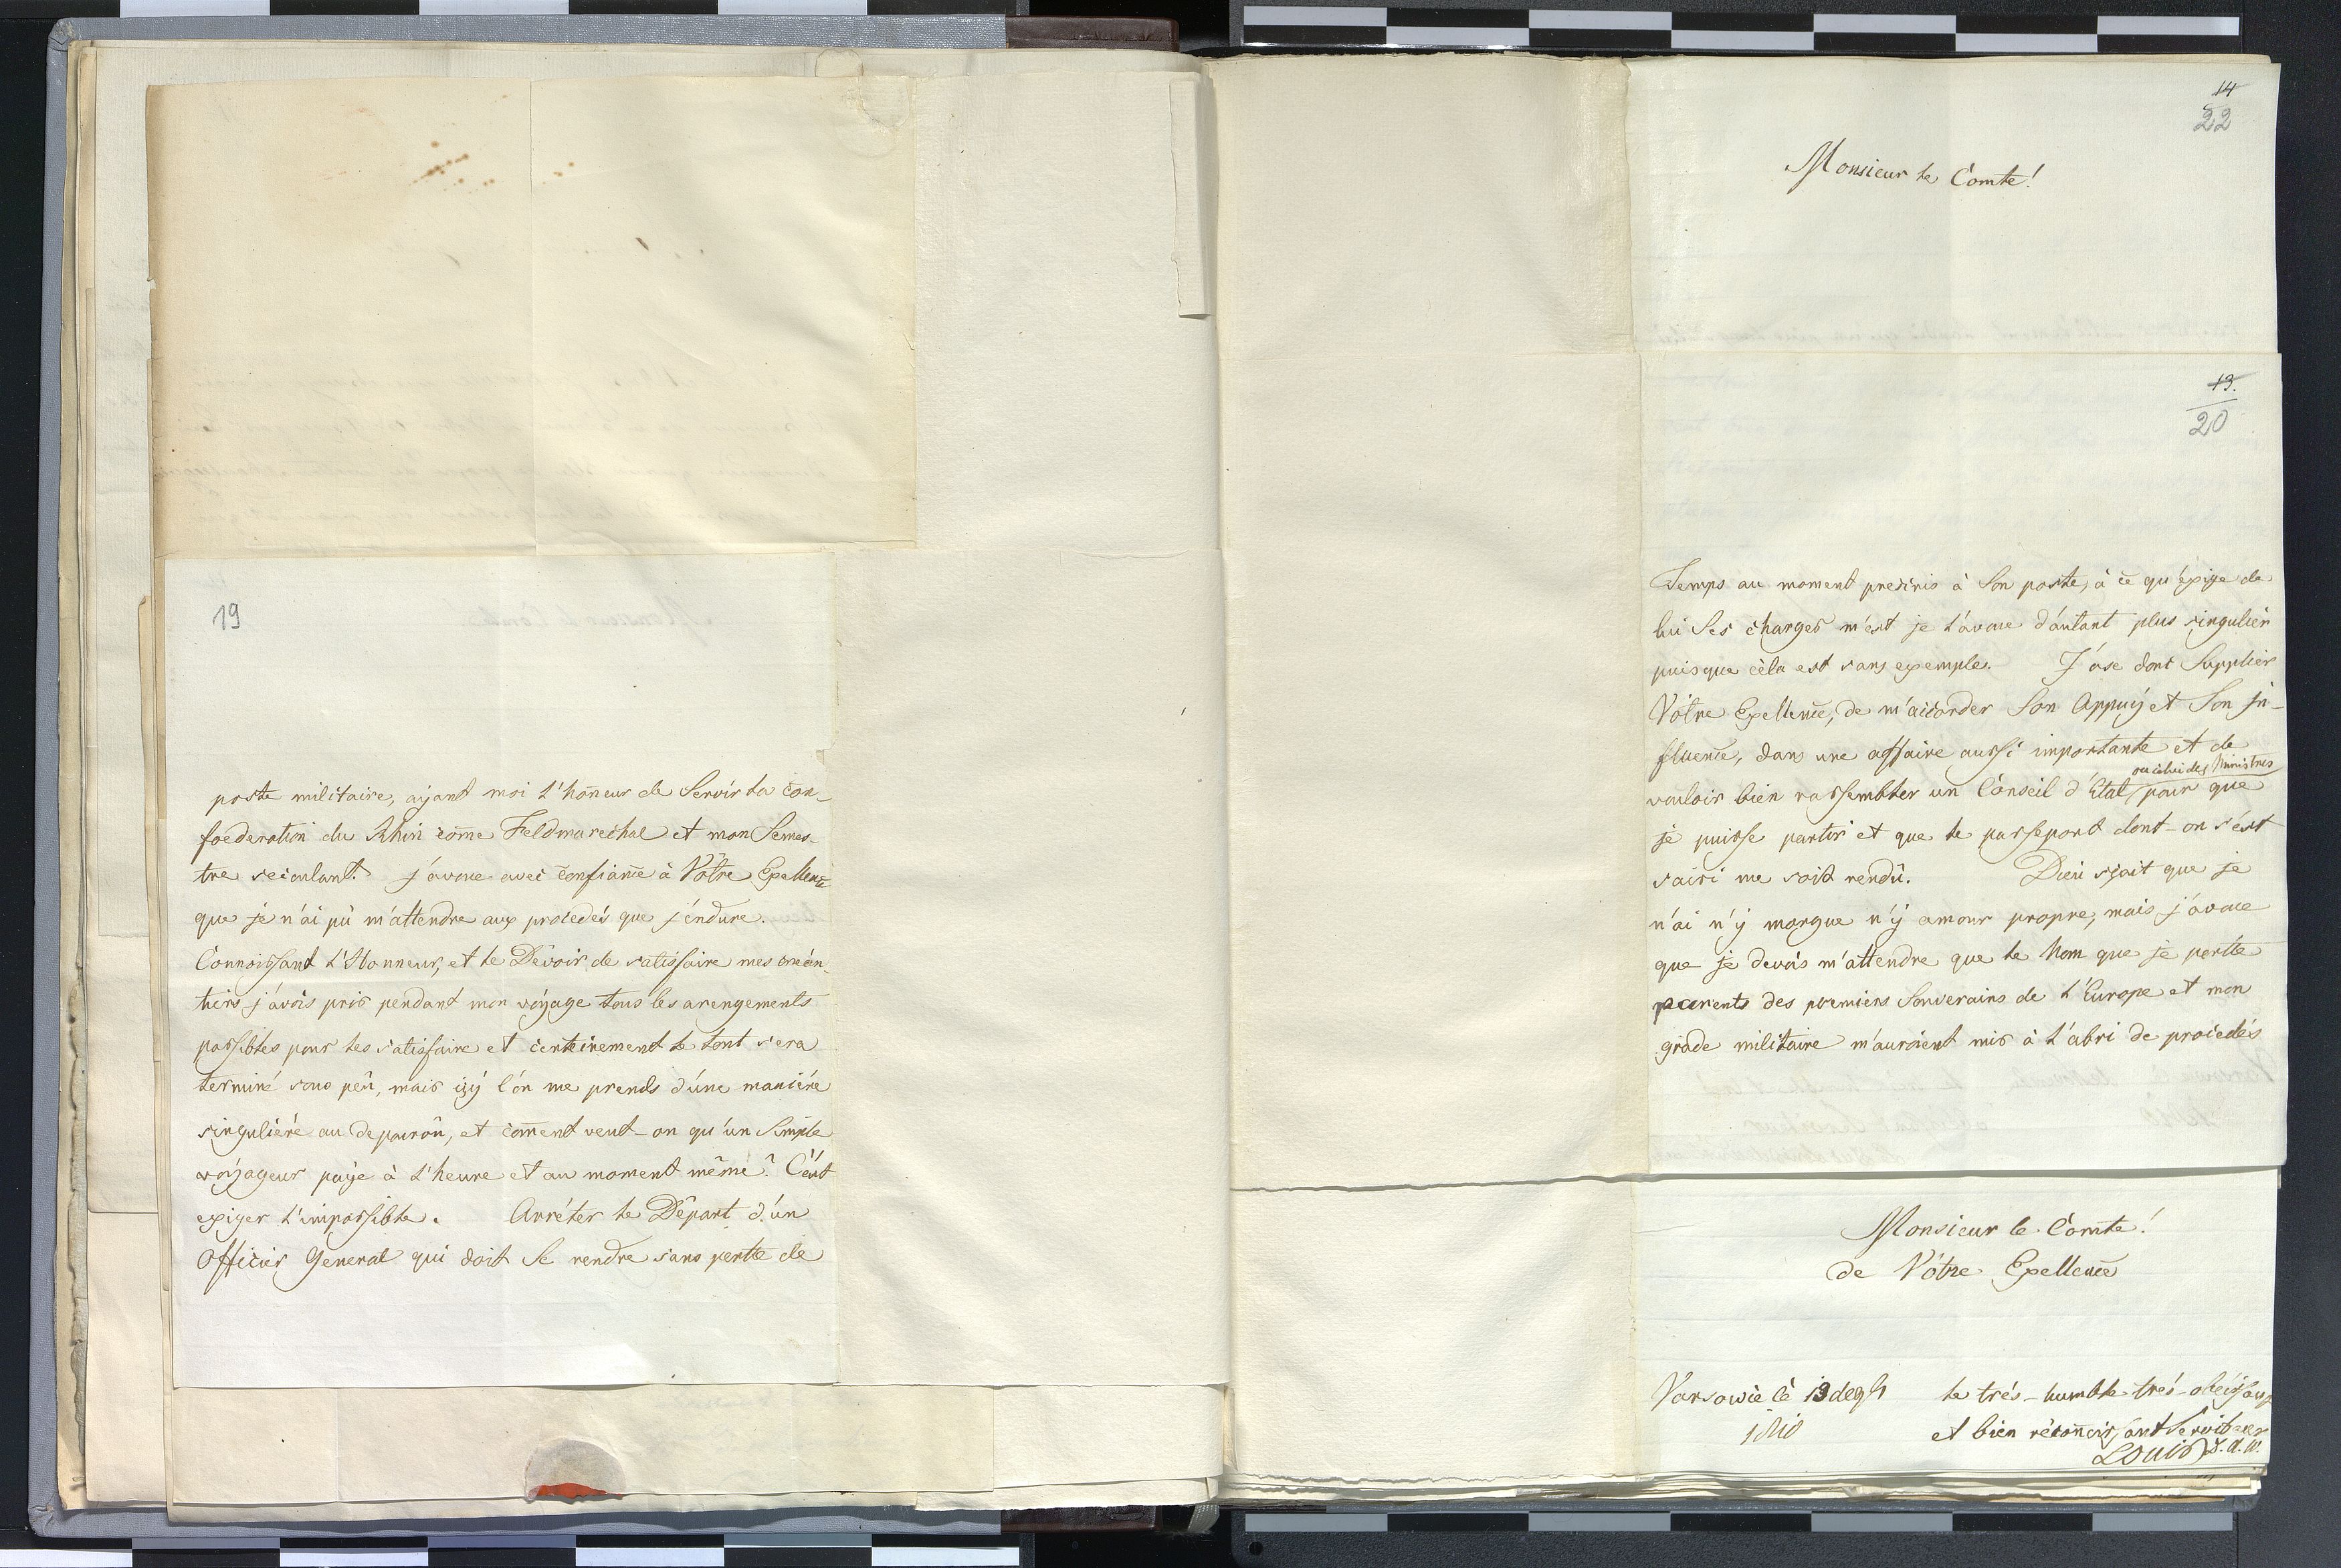 19
poste militaire, aÿant moi l'hoñeur de Servir la con-
foederation du Rhin come Feldmarechal et mon Semes-
tre secoulant. j'avoue avec confiance à Vôtre Exellence
que je n'ai pù m'attendre aux procedés que j'endure.
Connoissant l'Honneur, et le Devoir de satisfaire mes crean-
tiers j'avois pris pendant mon voÿage tous les arengements
possibles pour les satisfaire et certeinement le tout sera
terminé sous peû, mais içÿ l'on me prends d'une maniére
singuliéré au depouroû, et coment veut-on qu'un Simple
voÿageur paÿe à l'heure et au moment même? C'ést
exiger l'impossible. Arréter le Dêpart d'ún
Officier General qui doit Se rendre sans perte de
14
22
Monsieur le Comte!
13.
20
Temps au moment precris à Son poste, à ce qu'éxige de
lui Ses charges m'est je l'avoue d'áutant plus singulier
puisque cèla est sans exemple. J'ose donc Supplier
Vôtre Exellence, de m'accorder Son Appuÿ et Son In-
fluence, dans une affaire aussi importante et de
ou celui des Ministres
vouloir bien rassembler un Conseil d'Etat pour que
je puisse partir et que le passeport dont-on s'est
saisi me soit rendû. Dieu sçait que je
n'ai n'ÿ morgue n'ÿ amour propre, mais j'avoue
que je devois m'attendre que le Nom que je porte
parents des premiers Souverains de l'Europe et mon
grade militaire m'auroient mis à l'abri de procedés
Monsieur le Comte!
de Vôtre Exellence
Varsowie cè 13 de
1810
le trés-humble trés-obeissant
et bien réconeissant Serviteur
Louis